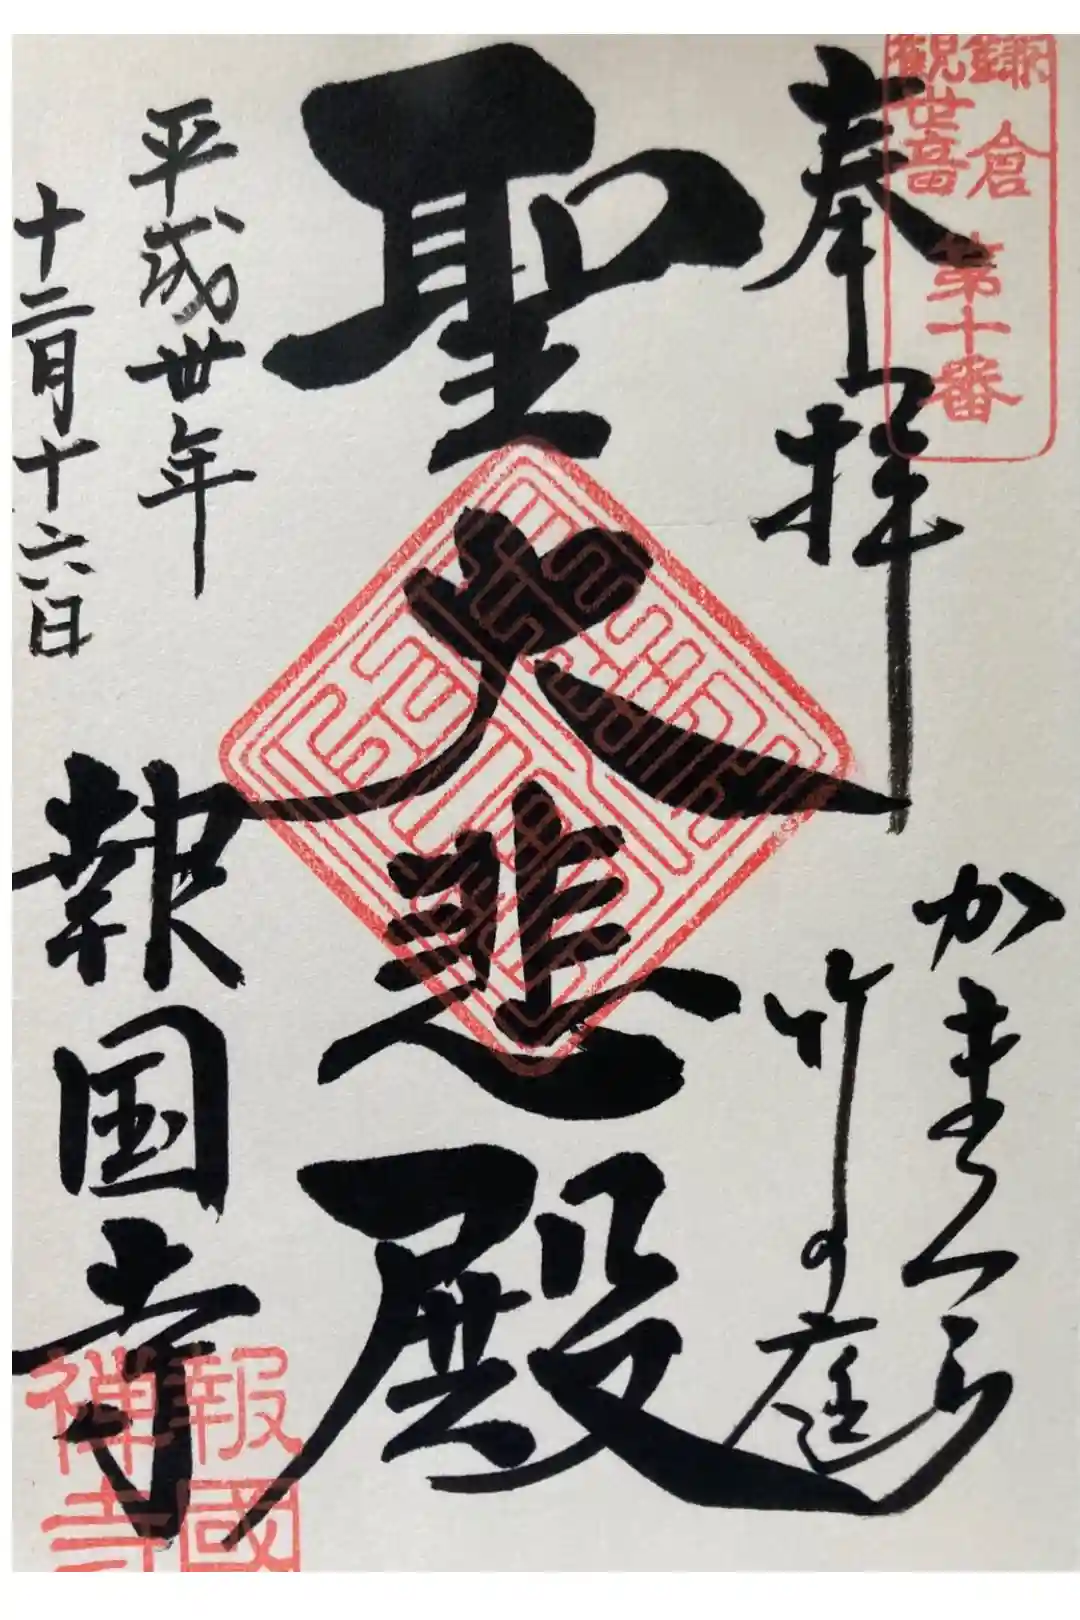 鎌倉
観世音
第十番
奉拝
かまくら
竹の庭
聖大悲殿
平成丗年
十二月十六日
報国寺
報國
禅寺